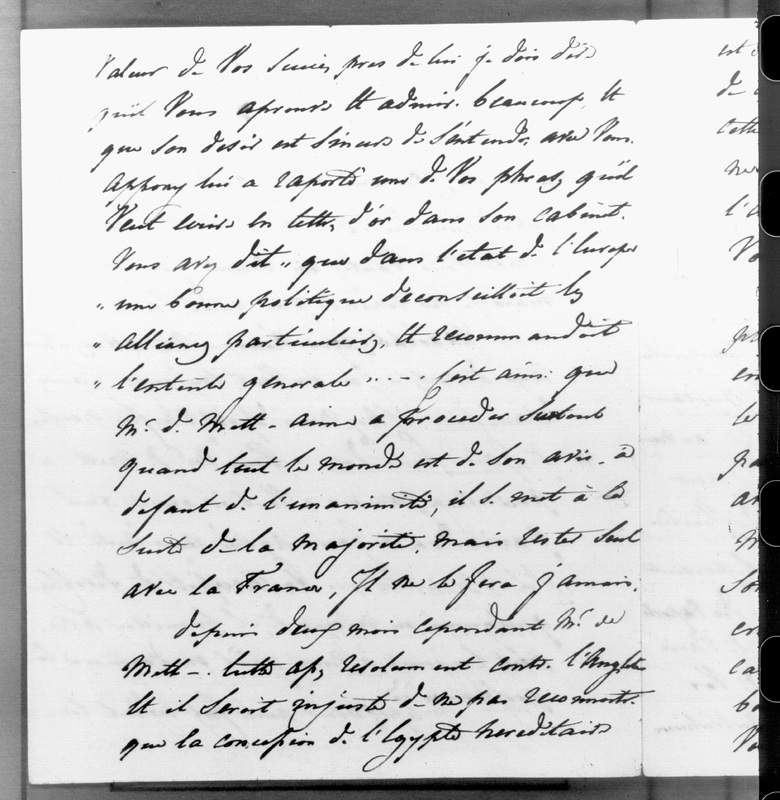 valeur de Vos Succès pres de lui je dois dire
qu'il Vous aprouve et admire beaucoup, et
que son desir est Sincere de S'entendre avec Vous.
Appony lui a raporté une de Vos phrases qu'il
Veut ecrire en lettres d'or dans son cabinet.
Vous avez dit " que dans l'etat de l'Europe
" une bonne politique deconseilloit les
" alliances particulieres, et recommandoit
" l'entente generale " . - - C'est ainsi que
Mr. de Mett - aime a proceder surtout
quand tout le monde est de son avis. a
defaut de l'unanimité, il se met à la
suite de la majorité, mais rester Seul
avec la France, Il ne le fera jamais.
depuis deux mois cependant Mr. de
Mett - lutte resolument contre l'Anglet
et il Seroit injuste de ne pas reconnoitre
que la concession de l'Egypte hereditaire
est
de
cette
l'
Vo